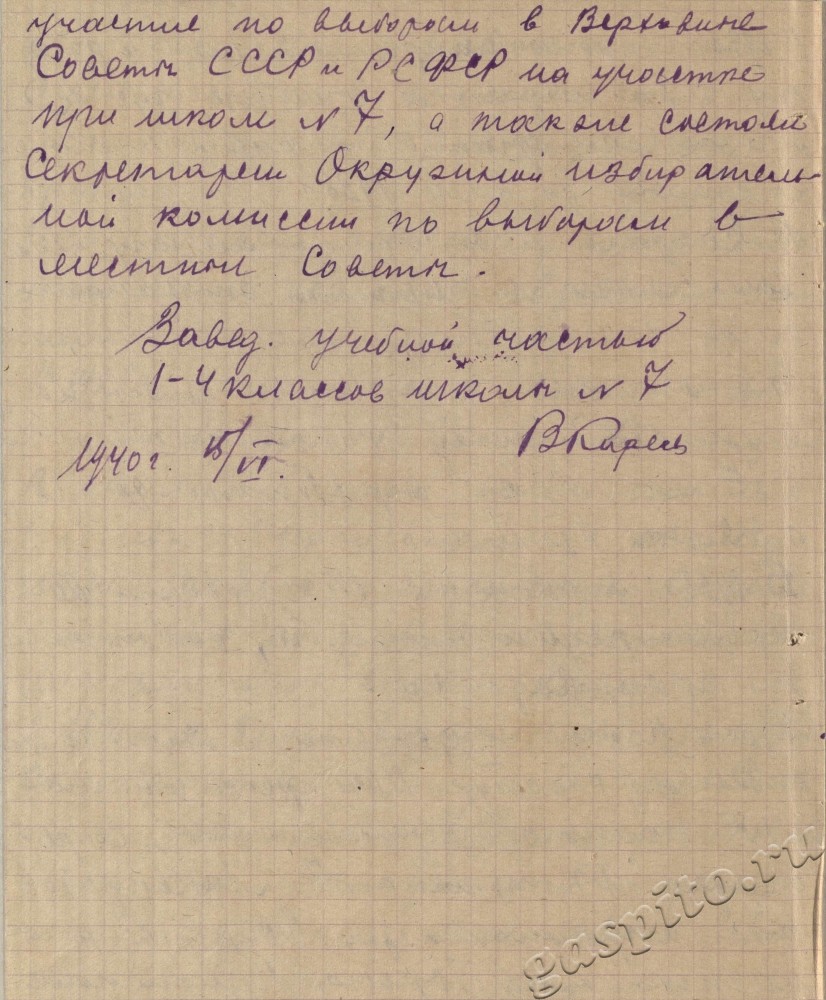 участие по выборам в Верховные
Советы СССР и РСФСР на участке
при школе № 7, а также состоял
Секретарем Окружной избиратель-
ной комиссии по выборам в
местные Советы.
Завед. учебной частью
1-4 классов школы № 7
1940 г. 15/VI.
gaspito.ru